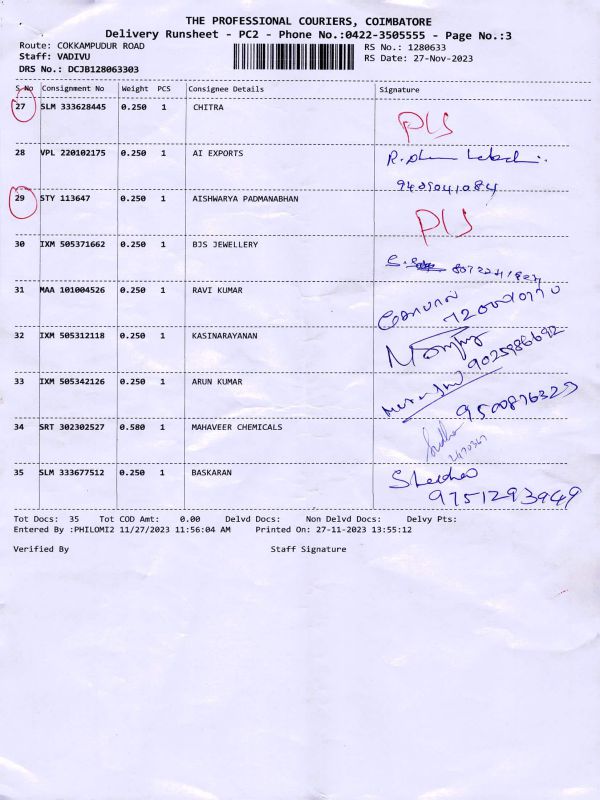 THE PROFESSIONAL COURIERS, COIMBATORE
Delivery Runsheet - PC2 - Phone No.:0422-3505555 - Page No.:3
Route: COKKAMPUDUR ROAD RS No.: 1280633
Staff: VADIVU RS Date: 27-Nov-2023
DRS No.: DCJB128063303
S No Consignment No Weight PCS Consignee Details Signature
27 SLM 333628445 0.250 1 CHITRA
28 VPL 220102175 0.250 1 AI EXPORTS
29 STY 113647 0.250 1 AISHWARYA PADMANABHAN
30 IXM 505371662 0.250 1 BJS JEWELLERY
31 MAA 101004526 0.250 1 RAVI KUMAR
32 IXM 505312118 0.250 1 KASINARAYANAN
9025986692
33 IXM 505342126 0.250 1 ARUN KUMAR
9500876325
34 SRT 302302527 0.580 1 MAHAVEER CHEMICALS
35 SLM 333677512 0.250 1 BASKARAN
9751293949
Tot Docs: 35 Tot COD Amt: 0.00 Delvd Docs: Non Delvd Docs: Delvy Pts:
Entered By :PHILOMI2 11/27/2023 11:56:04 AM Printed On: 27-11-2023 13:55:12
Verified By Staff Signature